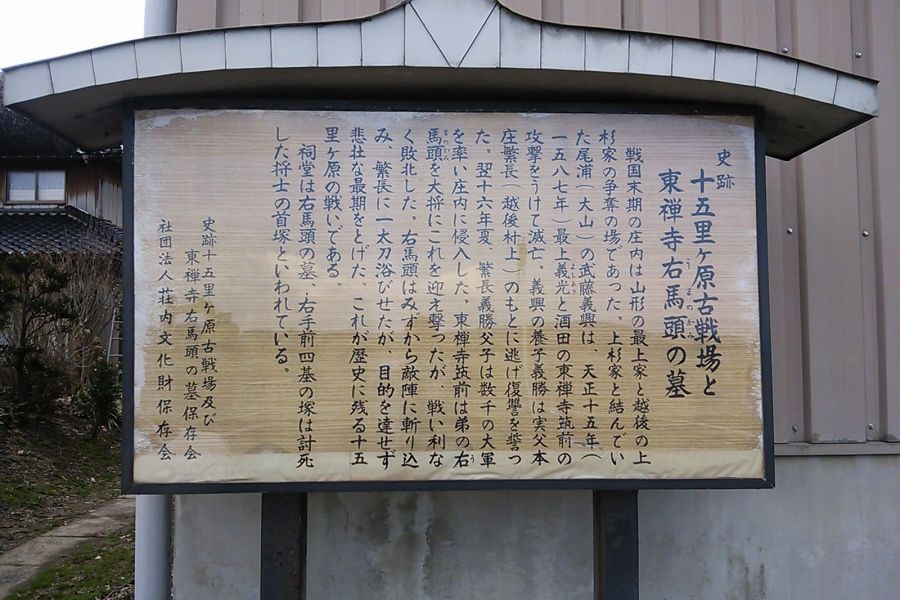 史跡
十五里ヶ原古戦場と
東禅寺右馬頭の墓
うまのかみ
戦国末期の庄内は山形の最上家と越後の上
杉家の争奪の場であった。上杉家と結んでい
た尾浦（大山）の武藤義興は、天正十五年（
一五八七年）最上義光と酒田の東禅寺筑前の
攻撃をうけて滅亡。義興の養子義勝は実父本
庄繁長（越後村上）のもとに逃げ復讐を誓っ
た。翌十六年夏　繁長義勝父子は数千の大軍
を率い庄内に侵入した。東禅寺筑前は弟の右
馬頭を大将にこれを迎え撃ったが、戦い利な
く敗北した。右馬頭はみずから敵陣に斬り込
み、繁長に一太刀浴びせたが、目的を達せず
悲壮な最期をとげた。これが歴史に残る十五
里ヶ原の戦いである。
祠堂は右馬頭の墓、右手前四基の塚は討死
した将士の首塚といわれている。
史跡十五里ヶ原古戦場及び
東禅寺右馬頭の墓保存会
社団法人荘内文化財保存会